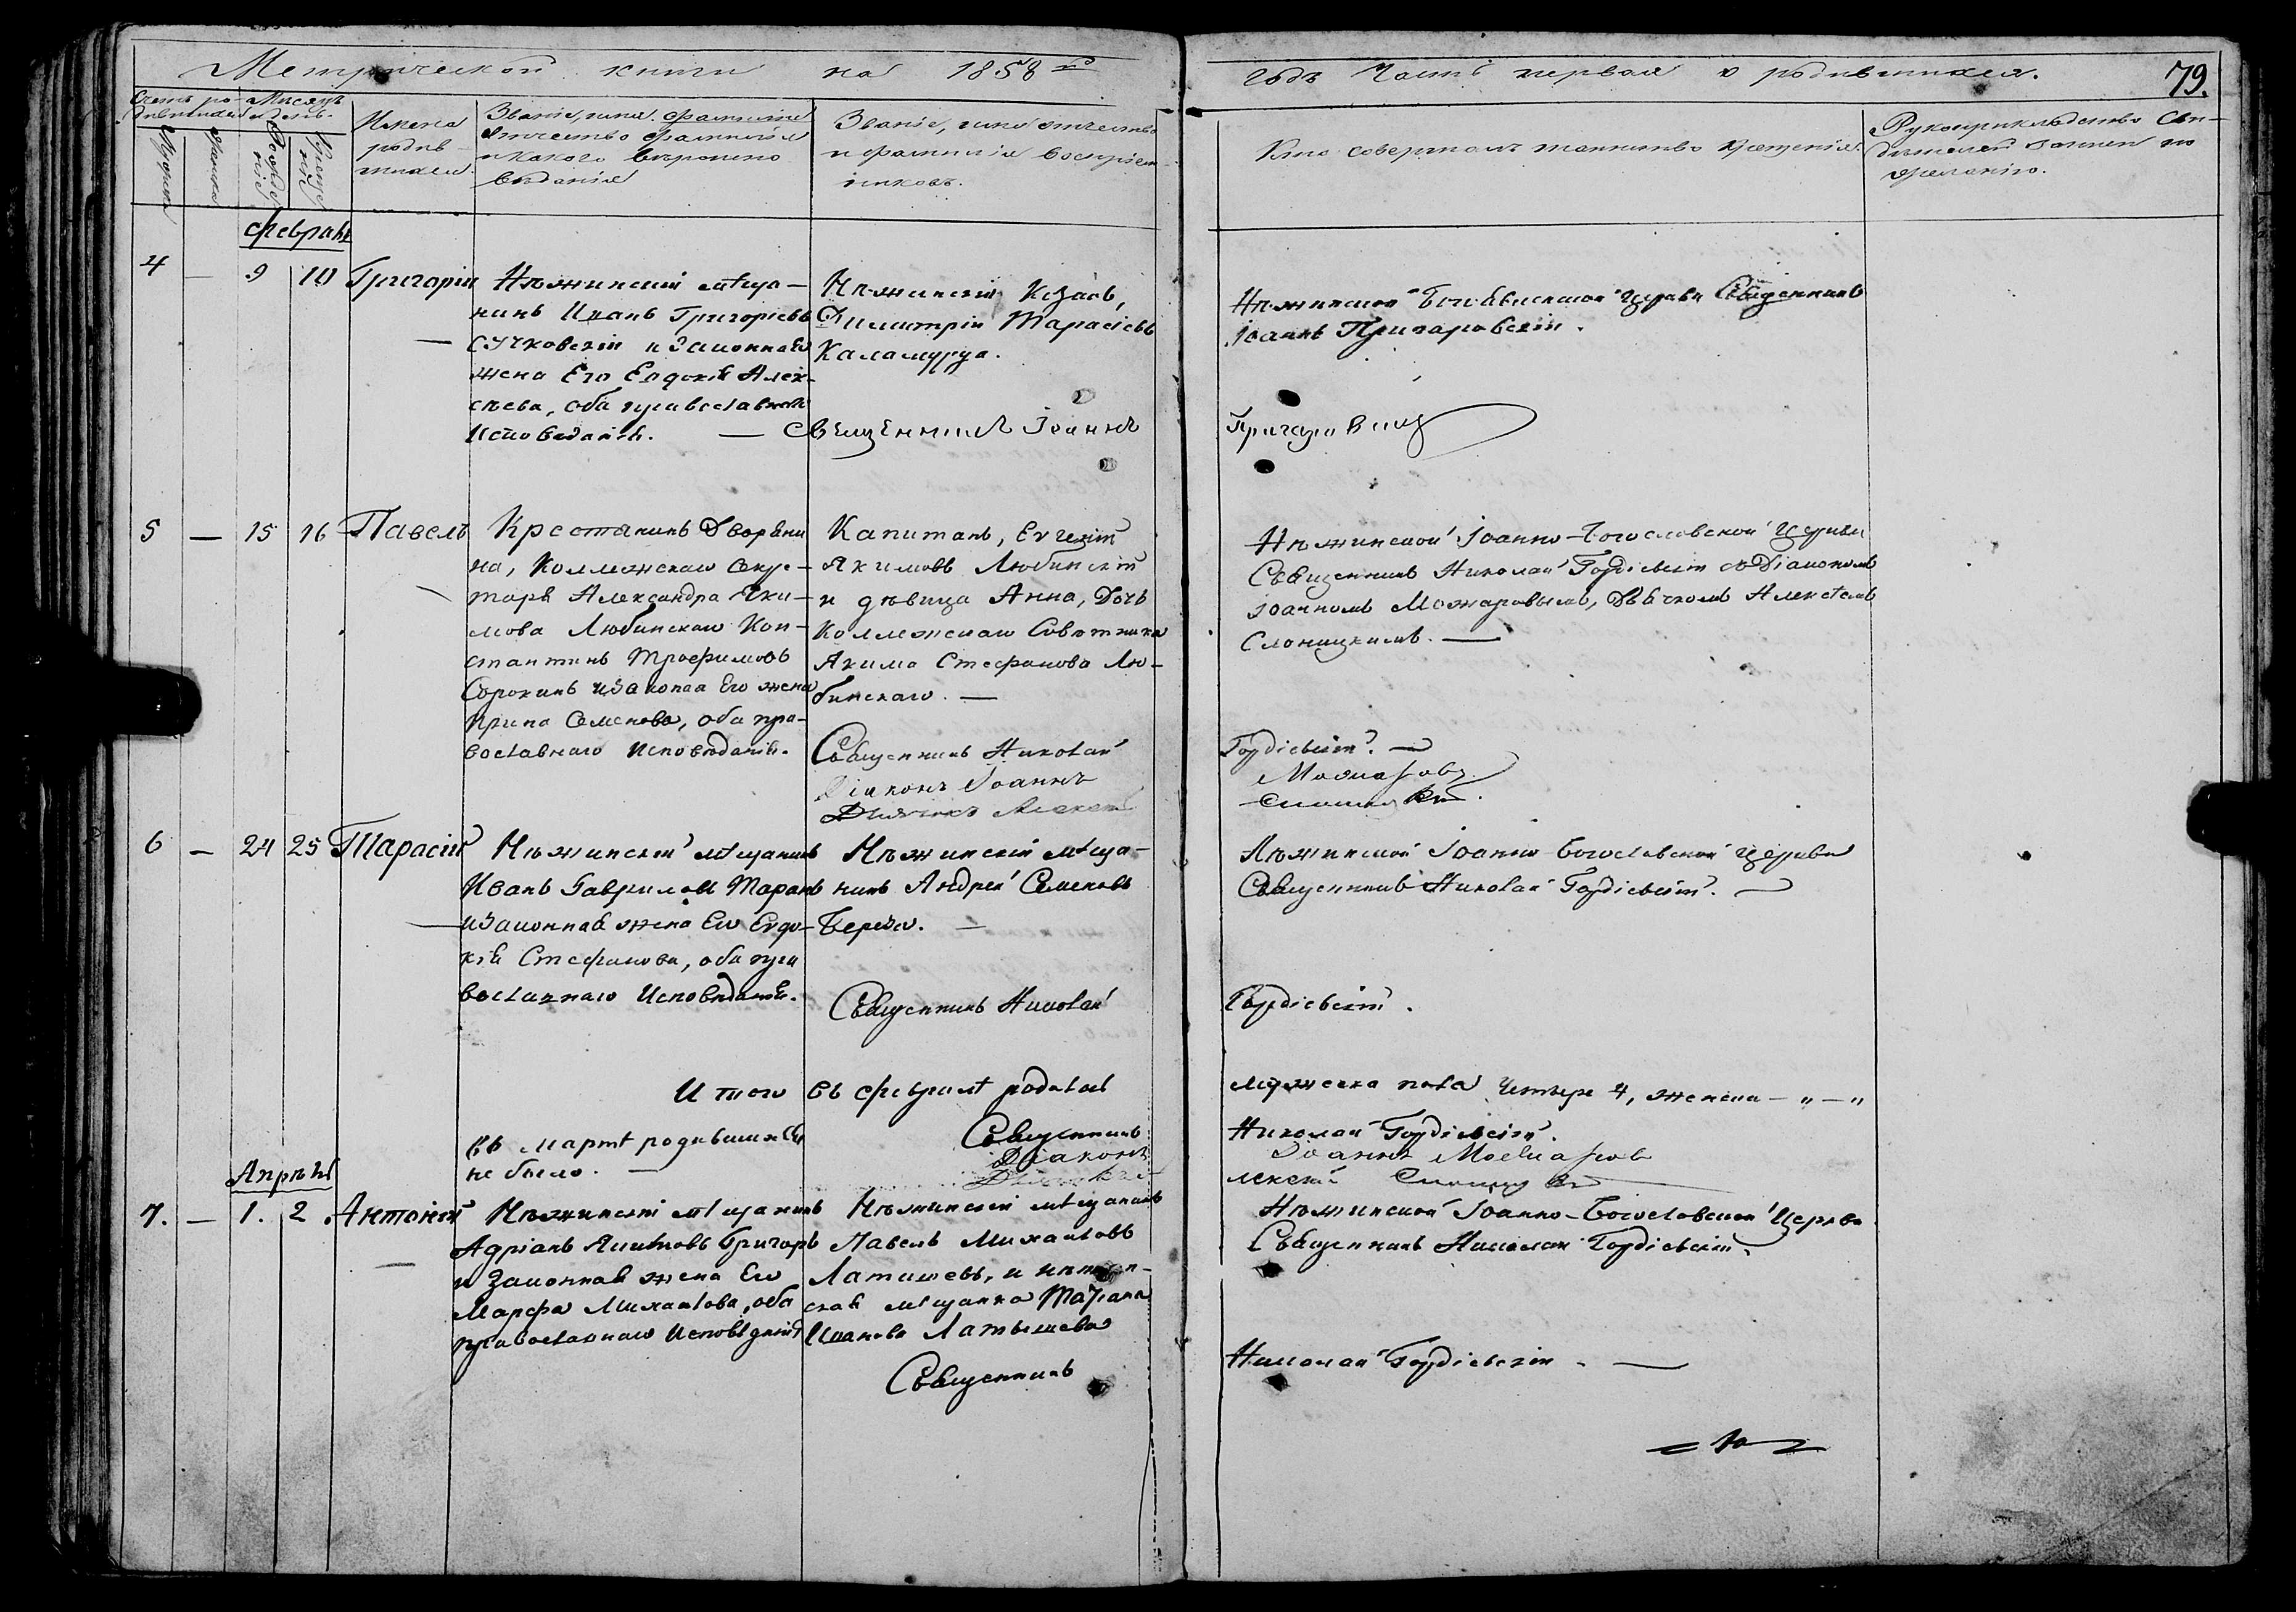 Метрической книги на 1858 го
годъ Часть первая о родившихся.
79.
Счетъ ро-
дившихся
Мѣсяцъ
и день.
Имена
родив-
шихся.
Званіе, имя, фамилія
отчество фамилія
и какого вѣроиспо
вѣданія
Званіе, имя отчество
и фамилія воспріем-
никовъ.
Кто совершалъ таинство крещенія.
Рукоприкладство сви-
дѣтелей записи по
желанію.
Февраль
4 — 9 10 Григорій
Нѣжинскій мѣща-
нинъ Иванъ Григорьевъ
Сучковскій и законная
жена Его Евдокія Алек-
сѣева, оба православнаго
Исповѣданія. —
Нѣжинскій Козакъ,
Димитрій Тарасіевъ
Каламурза.
Священникъ Іоаннъ
Нѣжинской Богоявленской Церкви Священникъ
Іоаннъ Пригаровскій.
Пригаровскій
5 — 15 16 Павелъ
Крестянинъ Дворяни
на, Коллежскаго Секре-
таря Александра Яки-
мова Любинскаго Кон-
стантинъ Трофимовъ
Сорокинъ и законая Его жена
Ирина Семенова, оба пра-
вославнаго Исповѣданія.
Капитанъ, Евгеній
Якимовъ Любинскій
и дѣвица Анна, Дочь
Коллежскаго Совѣтника
Якима Стефанова Лю-
бинскаго. —
Священникъ Николай
Діаконъ Іоаннъ
Дьячекъ Алексей
Нѣжинской Іоанно-Богословской Церкви
Священникъ Николай Гордіевскій съ Діакономъ
Іоанномъ Можаровымъ, Дьячкомъ Алексѣемъ
Слоницкимъ. —
Гордіевскій. —
Можаровъ
6 — 24 25 Тарасій
Нѣжинскій мѣщанинъ
Иванъ Гавриловъ Таранъ
и законная жена Его Евдо-
кія Стефанова, оба пра
вославнаго Исповѣданія.
Нѣжинскій мѣща-
нинъ Андрей Семеновъ
Береза. —
Священникъ Николай
Нѣжинской Іоанно-Богословской Церкви
Священникъ Николай Гордіевскій. —
Гордіевскій.
Итого въ Февралѣ родилось
мужеска пола Четыре 4, женска — „ — „
въ Мартѣ родившихся
не было. —
Священникъ
Діаконъ
Николай Гордіевскій.
Іоаннъ Можаровъ
Апрѣль
7. — 1. 2 Антоній
Нѣжинскій мѣщанинъ
Адріанъ Григорь
и Законная жена Его
Марфа Михайлова, оба
православнаго Исповѣданія
Нѣжинскій мѣщанинъ
Павелъ Михайловъ
Латишевъ, и нѣжин-
ская мѣщанка Татіана
Иванова Латышева
Священникъ
Нѣжинской Іоанно-Богословской Церкви
Священникъ Николай Гордіевскій.
Николай Гордіевскій. —